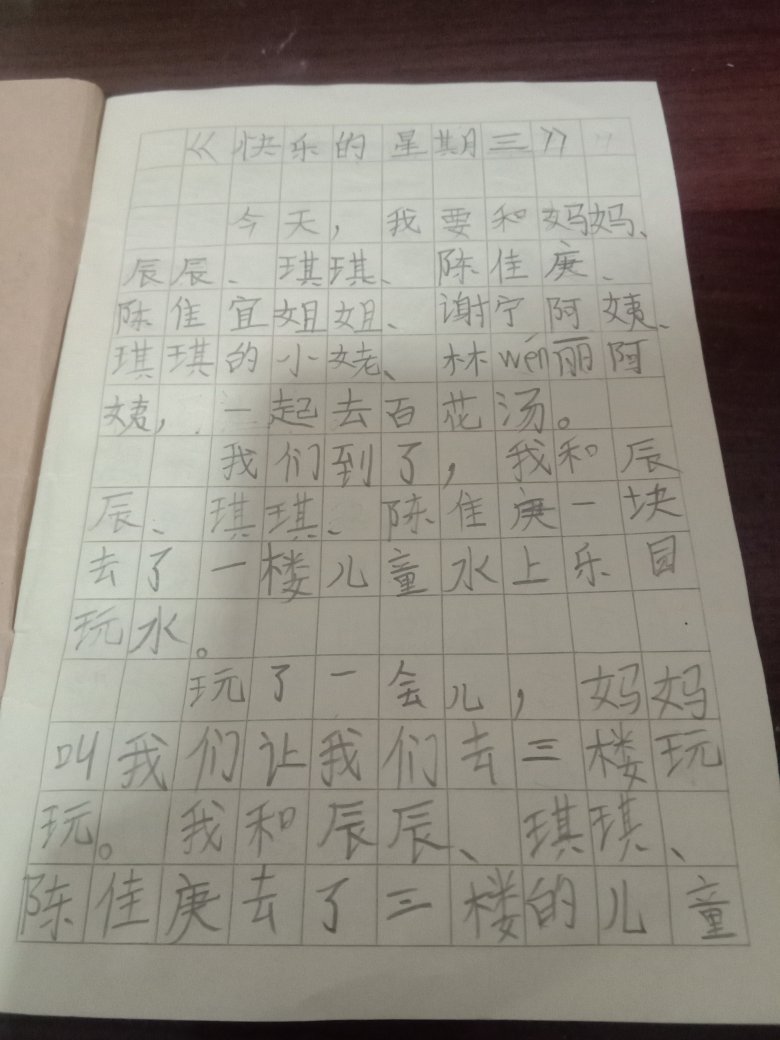 《快乐的星期三》
今天，我要和妈妈、
辰辰、琪琪、陈佳庚、
陈佳宜姐姐、谢宁阿姨、
琪琪的小姥、林wén丽阿
姨，一起去百花汤。
我们到了，我和辰
辰、琪琪、陈佳庚一块
去了一楼儿童水上乐园
玩水。
玩了一会儿，妈妈
叫我们让我们去三楼玩
玩。我和辰辰、琪琪、
陈佳庚去了三楼的儿童